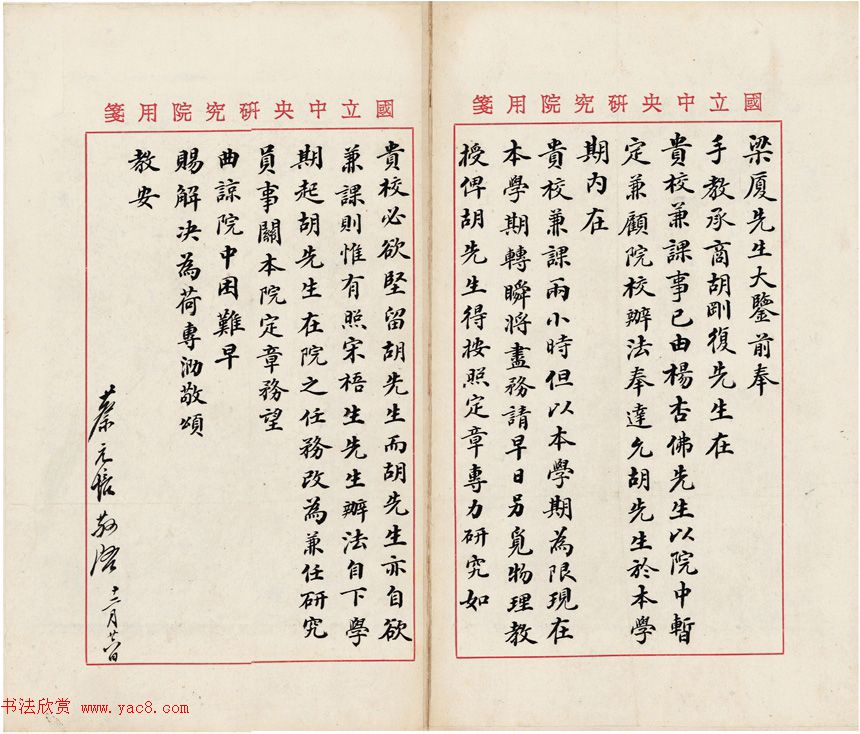 國立中央研究院用箋
梁厦先生大鑒前奉
手教承商胡剛復先生在
貴校兼課事已由楊杏佛先生以院中暫
定兼顧院校辦法奉達允胡先生於本學
期內在
貴校兼課兩小時但以本學期為限現在
本學期轉瞬將盡務請早日另覓物理教
授俾胡先生得按照定章專力研究如
國立中央研究院用箋
貴校必欲堅留胡先生而胡先生亦自欲
兼課則惟有照宋梧生先生辦法自下學
期起胡先生在院之任務改為兼任研究
員事關本院定章務望
曲諒院中困難早
賜解决為荷專泐敬頌
教安
蔡元培敬啓 十二月廿八日
书法欣赏 www.yac8.com